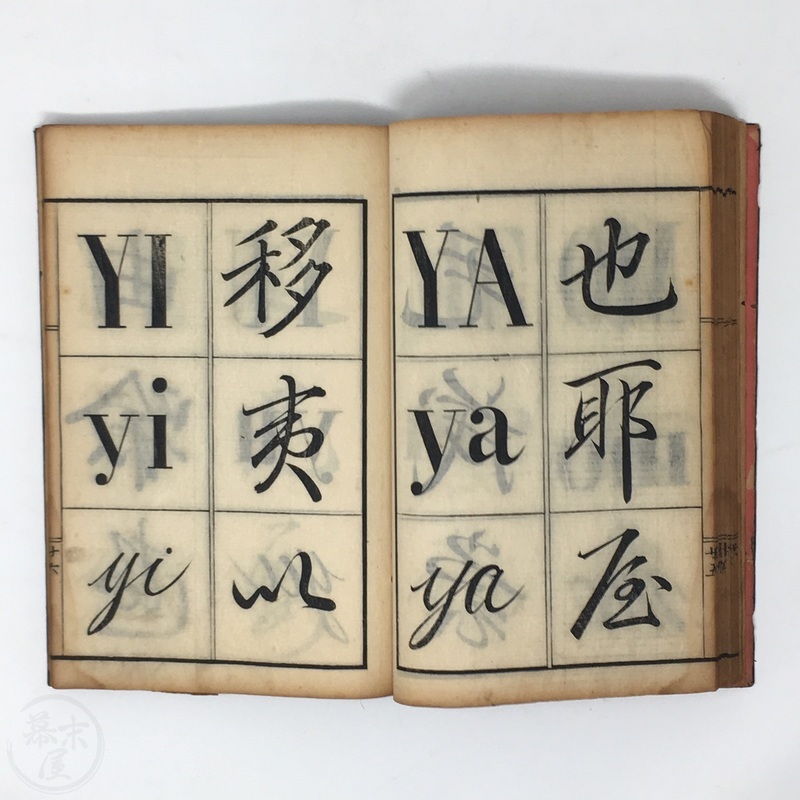 也耶屋
YA
ya
ya
移夷以
YI
yi
yi
幕末屋